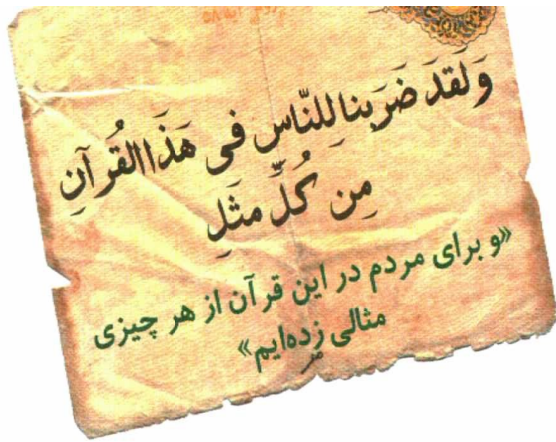 وَلَقَدَ ضَرَبنا لِلنّاسِ فی هَذَا القُرآنِ
مِن کُلِّ مثَلِ
«و برای مردم در این قرآن از هر چیزی
مثالی زده‌ایم»